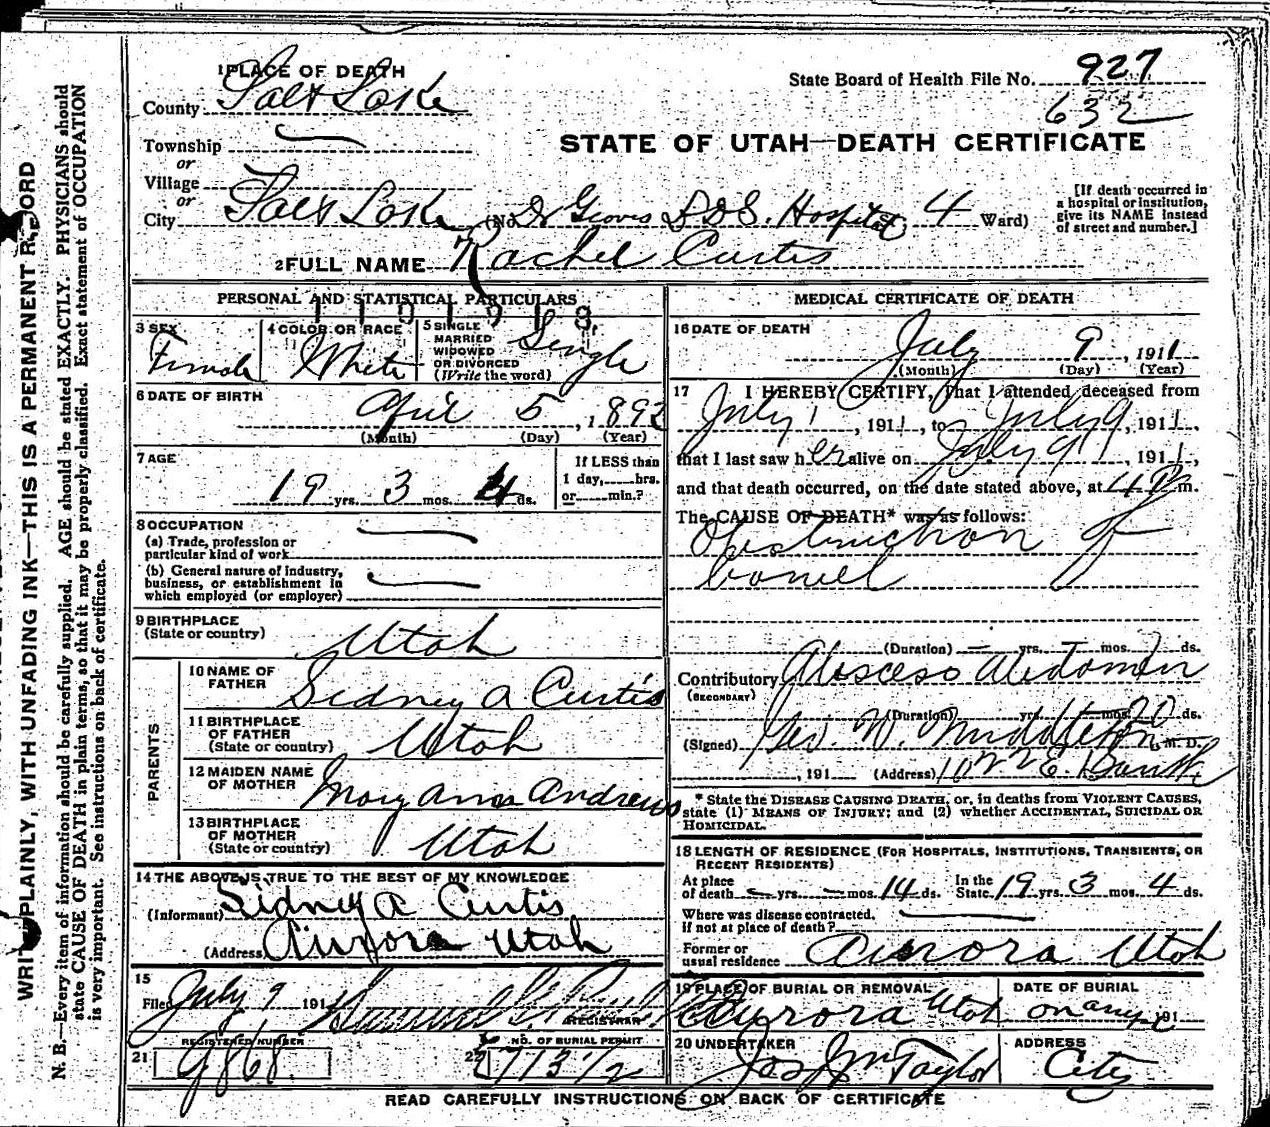 1 PLACE OF DEATH
County Salt Lake
Township
or
Village
or
City Salt Lake (No. Dr Groves L.D.S. Hospital 4 Ward)
State Board of Health File No. 927
632
STATE OF UTAH—DEATH CERTIFICATE
[If death occurred in
a hospital or institution,
give its NAME instead
of street and number.]
2 FULL NAME Rachel Curtis
PERSONAL AND STATISTICAL PARTICULARS
3 SEX Female
4 COLOR OR RACE White
5 SINGLE
MARRIED
WIDOWED
OR DIVORCED
(Write the word) Single
6 DATE OF BIRTH
April 5, 1892
(Month) (Day) (Year)
7 AGE
19 yrs. 3 mos. 4 ds.
If LESS than
1 day, hrs.
or min.?
8 OCCUPATION
(a) Trade, profession or
particular kind of work
(b) General nature of industry,
business, or establishment in
which employed (or employer)
9 BIRTHPLACE
(State or country) Utah
PARENTS
10 NAME OF
FATHER Sidney A Curtis
11 BIRTHPLACE
OF FATHER
(State or country) Utah
12 MAIDEN NAME
OF MOTHER Mary Ann Andrews
13 BIRTHPLACE
OF MOTHER
(State or country) Utah
14 THE ABOVE IS TRUE TO THE BEST OF MY KNOWLEDGE
(Informant) Sidney A Curtis
(Address) Aurora Utah
15
Filed July 9 191
REGISTRAR
REGISTERED NUMBER
21 9868
NO. OF BURIAL PERMIT
22
MEDICAL CERTIFICATE OF DEATH
16 DATE OF DEATH
July 9, 1911
(Month) (Day) (Year)
17 I HEREBY CERTIFY, that I attended deceased from
July 1, 1911, to July 9, 1911,
that I last saw her alive on July 9, 1911,
and that death occurred, on the date stated above, at 4 P m.
The CAUSE OF DEATH* was as follows:
Obstruction of
bowel
(Duration) yrs. mos. ds.
Contributory Abscess Abdomen
(SECONDARY)
(Duration) yrs. mos. 20 ds.
(Signed) Geo. W. Middleton, M. D.
, 191 (Address)
* State the DISEASE CAUSING DEATH, or, in deaths from VIOLENT CAUSES,
state (1) MEANS OF INJURY; and (2) whether ACCIDENTAL, SUICIDAL OR
HOMICIDAL.
18 LENGTH OF RESIDENCE (FOR HOSPITALS, INSTITUTIONS, TRANSIENTS, OR
RECENT RESIDENTS)
At place
of death yrs. mos. 14 ds. In the
State 19 yrs. 3 mos. 4 ds.
Where was disease contracted,
if not at place of death?
Former or
usual residence Aurora Utah
19 PLACE OF BURIAL OR REMOVAL
Aurora Utah
DATE OF BURIAL
191
20 UNDERTAKER
Jos Wm Taylor
ADDRESS
City
READ CAREFULLY INSTRUCTIONS ON BACK OF CERTIFICATE
WRITE PLAINLY, WITH UNFADING INK—THIS IS A PERMANENT RECORD
N. B.—Every item of information should be carefully supplied. AGE should be stated EXACTLY. PHYSICIANS should
state CAUSE OF DEATH in plain terms, so that it may be properly classified. Exact statement of OCCUPATION
is very important. See instructions on back of certificate.